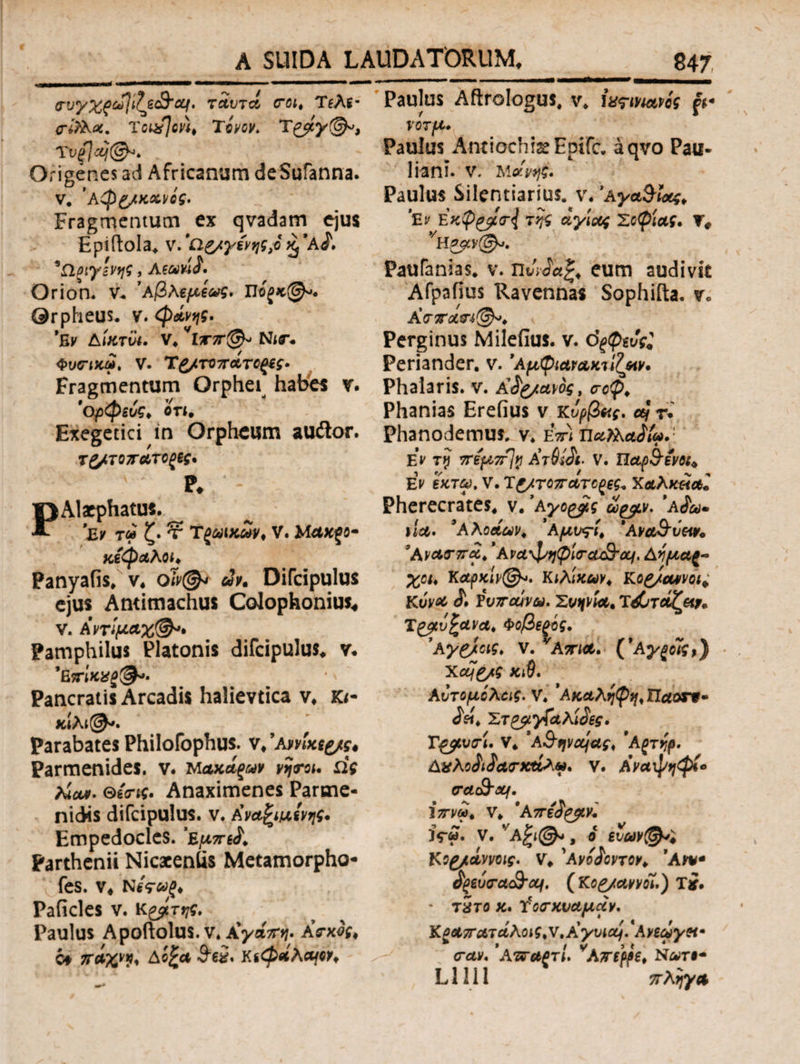 A SUIDA LAUDATORUM. 847
συγχρωτίζεσθαι. ταῦτά σοι. Τελε-
σίλλα. Τοιοῦτονὶ. Τόνον. Τράγος,
Origenes ad Africanum de Susanna.
v. Ἀφρικανός.
Fragmentum ex qvadam ejus
Epistola. v. Ὠριγένης, ὁ καὶ Ἀδ.
Ὠριγένης, Λεωνίδ.
Orion. v. Ἀβλεμέως. Πόρκος.
Orpheus. v. φάνης.
Ἐν Δικτύι. v. Ἵππος Νισ.
Φυσικῷ. v. Τριτοπάτορες.
Fragmentum Orphei habes v.
Ὀρφεύς. ὅτι.
Exegetici in Orpheum auctor.
τριτοπάτορες.
P.
PAlæphatus.
Ἐν τῷ ζ. τ Τρωικῶν, v. Μακρο-
κέφαλοι.
Panyasis. v. οἷος ὤν. Discipulus
ejus Antimachus Colophonius.
v. Ἀντίμαχος.
Pamphilus Platonis discipulus. v.
Ἐπίκουρος.
Pancratis Arcadis halievtica v. Κι-
κίλιος.
Parabates Philosophus. v. Ἀννίκερις.
Parmenides. v. Μακάρων νῆσοι. Ὡς
λίαν. Θέσις. Anaximenes Parme-
nidis discipulus. v. Ἀναξιμένης.
Empedocles. Ἐμπεδ.
Parthenii Nicæensis Metamorpho-
ses. v. Νέστωρ.
Pasicles v. Κράτης.
Paulus Apostolus. v. Ἀγάπη. Ἀσκός.
ἐν πάχνῃ. Δόξα θεοῦ. Κεφάλαιον.
Paulus Astrologus. v. ἰουστινιανός ῥι-
νότμ.
Paulus Antiochiæ Episc. à qvo Pau-
liani. v. Μάνης.
Paulus Silentiarius. v. Ἀγαθίας.
Ἐν Ἐκφράσει τῆς ἁγίας Σοφίας. v.
Pausanias. v. Πίνδαξ. eum audivit
Aspasius Ravennas Sophista. v.
Ἀσπάσιος.
Perginus Milesius. v. Ὀρφεύς.
Periander. v. Ἀμφιανακτίζειν.
Phalaris. v. Ἀδριανὸς, σοφ.
Phanias Eresius v Κύρβεις. αἱ τ.
Phanodemus. v. Ἐπὶ Παλλαδίῳ.
Ἐν τῇ πέμπτῃ Ἀτθίδι. v. Παρθένοι.
Ἐν ἕκτῳ. v. Τριτοπάτορες. Χαλκεῖα.
Pherecrates. v. Ἀγορᾶς ὥραν. Ἀδω-
νία. Ἀλοάων. Ἀμυστί. Ἀναθύειν.
Ἀνασπᾷ. Ἀναψηφίσασθαι. Δήμαρ-
χοι. Καρκίνος. Κιλίκων. Κορίαννοι.
Κύνα δ. Ῥυπαίνω. Συηνία. Ταυτάζειν.
Τραύξανα. Φοβερός.
Ἀγρίοις. v. Ἄπια. (Ἀγροῖς,)
Χαῖρις κιθ.
Αὐτομόλοις. v. Ἀκαλήφη. Πασπα-
Στραγγαλίδες.
Γραυσί. v. Ἀθηναίας. Ἀρτήρ.
Δουλοδιδασκάλῳ. v. Ἀναψηφί-
σασθαι.
ἰπνῷ. v. Ἀπέδραν.
ἰστῶ. v. Ἄξιος, ὁ εὔωνος.
Κοριάννοις. v. Ἀνόδοντον. Ἀνυ-
δρεύσασθαι. (Κοριαννοῖ.) Τοῦ.
τοῦτο κ. Ὑοσκυαμᾶν.
Κραπατάλοις. v. Ἀγυιαί. Ἀνεῴγει-
σαν. Ἀπαρτί. Ἄπερρε. Νωτο-
Lllll πλῆγα